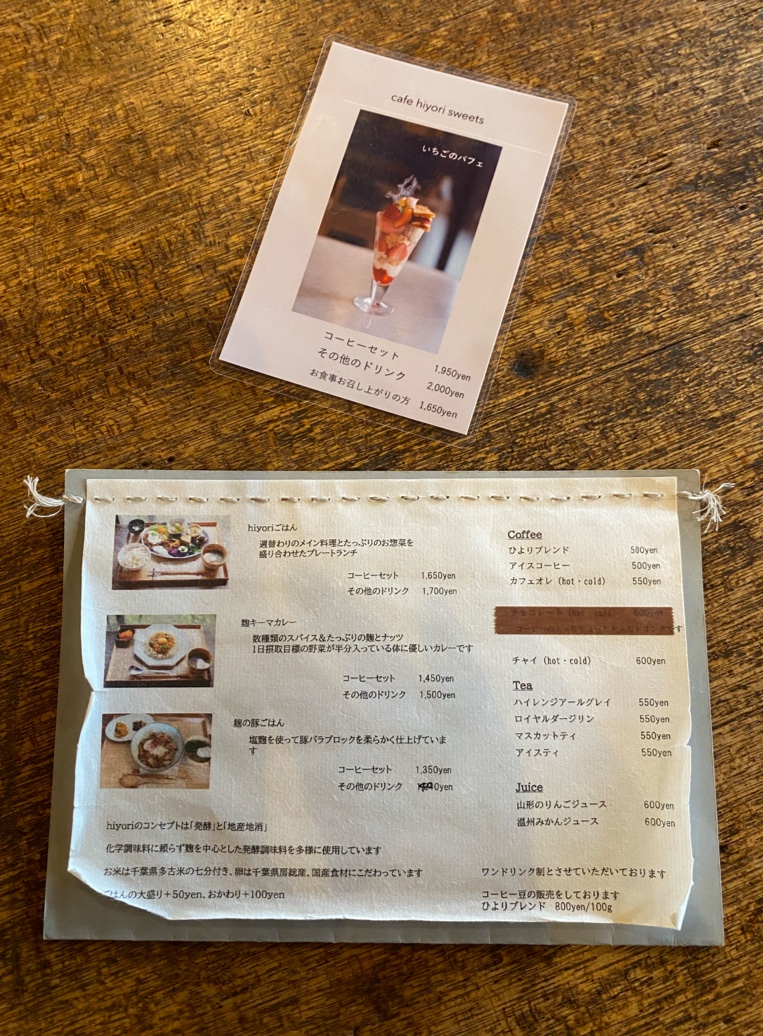 cafe hiyori sweets
いちごのパフェ
コーヒーセット 1,950yen
その他のドリンク 2,000yen
お食事お召し上がりの方 1,650yen
hiyoriごはん
週替わりのメイン料理とたっぷりのお惣菜を
盛り合わせたプレートランチ
コーヒーセット 1,650yen
その他のドリンク 1,700yen
麹キーマカレー
数種類のスパイス&たっぷりの麹とナッツ
1日摂取目標の野菜が半分入っている体に優しいカレーです
コーヒーセット 1,450yen
その他のドリンク 1,500yen
麹の豚ごはん
塩麹を使って豚バラブロックを柔らかく仕上げていま
す
コーヒーセット 1,350yen
その他のドリンク
hiyoriのコンセプトは「発酵」と「地産地消」
化学調味料に頼らず麹を中心とした発酵調味料を多様に使用しています
お米は千葉県多古米の七分付き、卵は千葉県房総産、国産食材にこだわっています
ごはんの大盛り+50yen、おかわり+100yen
Coffee
ひよりブレンド 500yen
アイスコーヒー 500yen
カフェオレ (hot・cold) 550yen
チャイ (hot・cold) 600yen
Tea
ハイレンジアールグレイ 550yen
ロイヤルダージリン 550yen
マスカットティ 550yen
アイスティ 550yen
Juice
山形のりんごジュース 600yen
温州みかんジュース 600yen
ワンドリンク制とさせていただいております
コーヒー豆の販売をしております
ひよりブレンド 800yen/100g